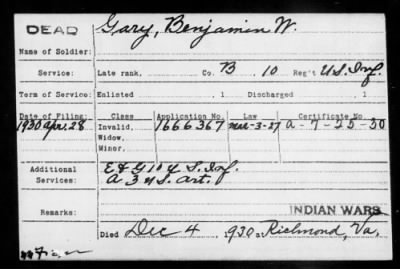 DEAD Gary, Benjamin W.
Name of Soldier:
Service: Late rank, Co. B 10 Reg't U.S. Inf.
Term of Service: Enlisted , 1 Discharged , 1
Date of Filing: Class Application No. Law Certificate No.
1930 Apr. 28 Invalid, 1666367 Mar-3-27 A-7-25-30
Widow,
Minor,
Additional E & G 10 U.S. Inf.
Services: A 3 U.S. Art.
Remarks: INDIAN WARS
Died Dec 4, 1930 at Richmond, Va.